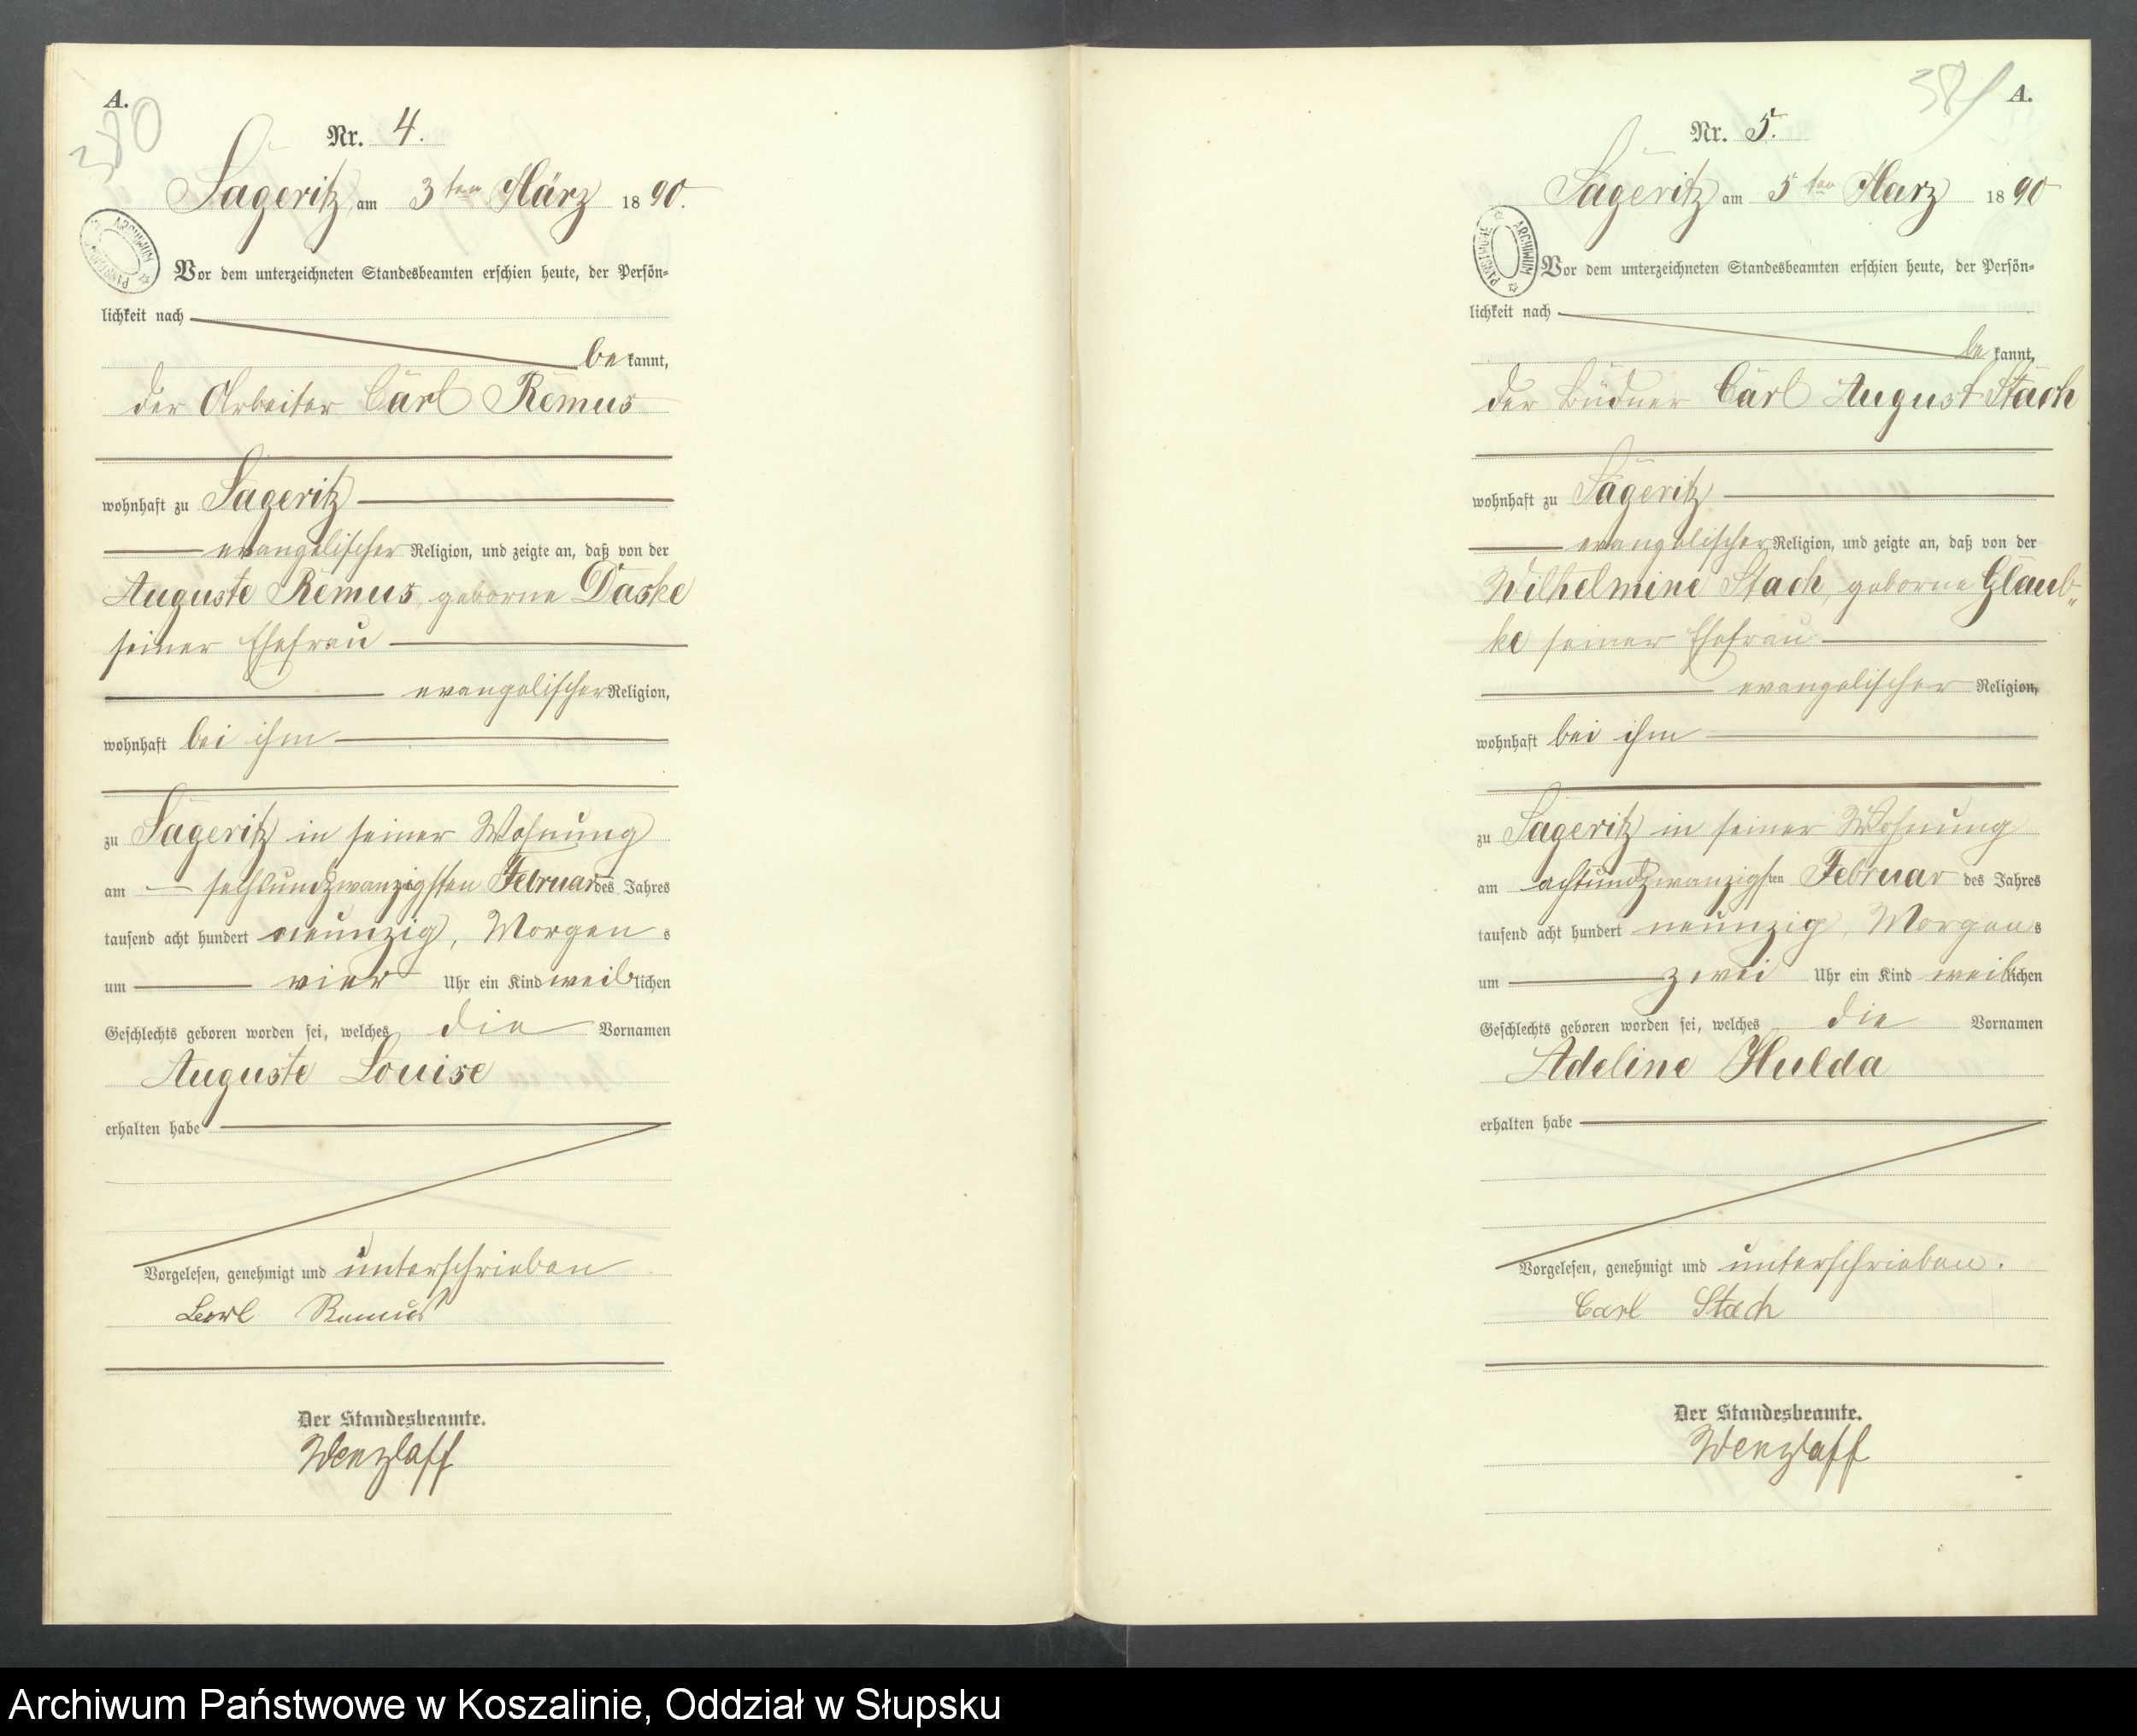 A.
380
Nr. 4.
Sageritz, am 3ten März 1890.
ARCHIWUM PAŃSTWOWE
Vor dem unterzeichneten Standesbeamten erschien heute, der Persön=
lichkeit nach
bekannt,
der Arbeiter Carl Remus
wohnhaft zu Sageritz
evangelischer Religion, und zeigte an, daß von der
Auguste Remus geborne Daske
seiner Ehefrau
evangelischer Religion,
wohnhaft bei ihm
zu Sageritz in seiner Wohnung
am sechsundzwanzigsten Februar des Jahres
tausend acht hundert neunzig, Morgens
um vier Uhr ein Kind weiblichen
Geschlechts geboren worden sei, welches die Vornamen
Auguste Louise
erhalten habe
Vorgelesen, genehmigt und unterschrieben
Carl Remus
Der Standesbeamte.
Wenzlaff
381
A.
Nr. 5.
Sageritz am 5ten März 1890
ARCHIWUM PAŃSTWOWE
Vor dem unterzeichneten Standesbeamten erschien heute, der Persön=
lichkeit nach
bekannt,
der Büdner Carl August Stach
wohnhaft zu Sageritz
evangelischer Religion, und zeigte an, daß von der
Wilhelmine Stach, geborne Glaub„
ke seiner Ehefrau
evangelischer Religion,
wohnhaft bei ihm
zu Sageritz in seiner Wohnung
am achtundzwanzigsten Februar des Jahres
tausend acht hundert neunzig, Morgens
um zwei Uhr ein Kind weiblichen
Geschlechts geboren worden sei, welches die Vornamen
Adeline Hulda
erhalten habe
Vorgelesen, genehmigt und unterschrieben.
Carl Stach
Der Standesbeamte.
Wenzlaff
Archiwum Państwowe w Koszalinie, Oddział w Słupsku